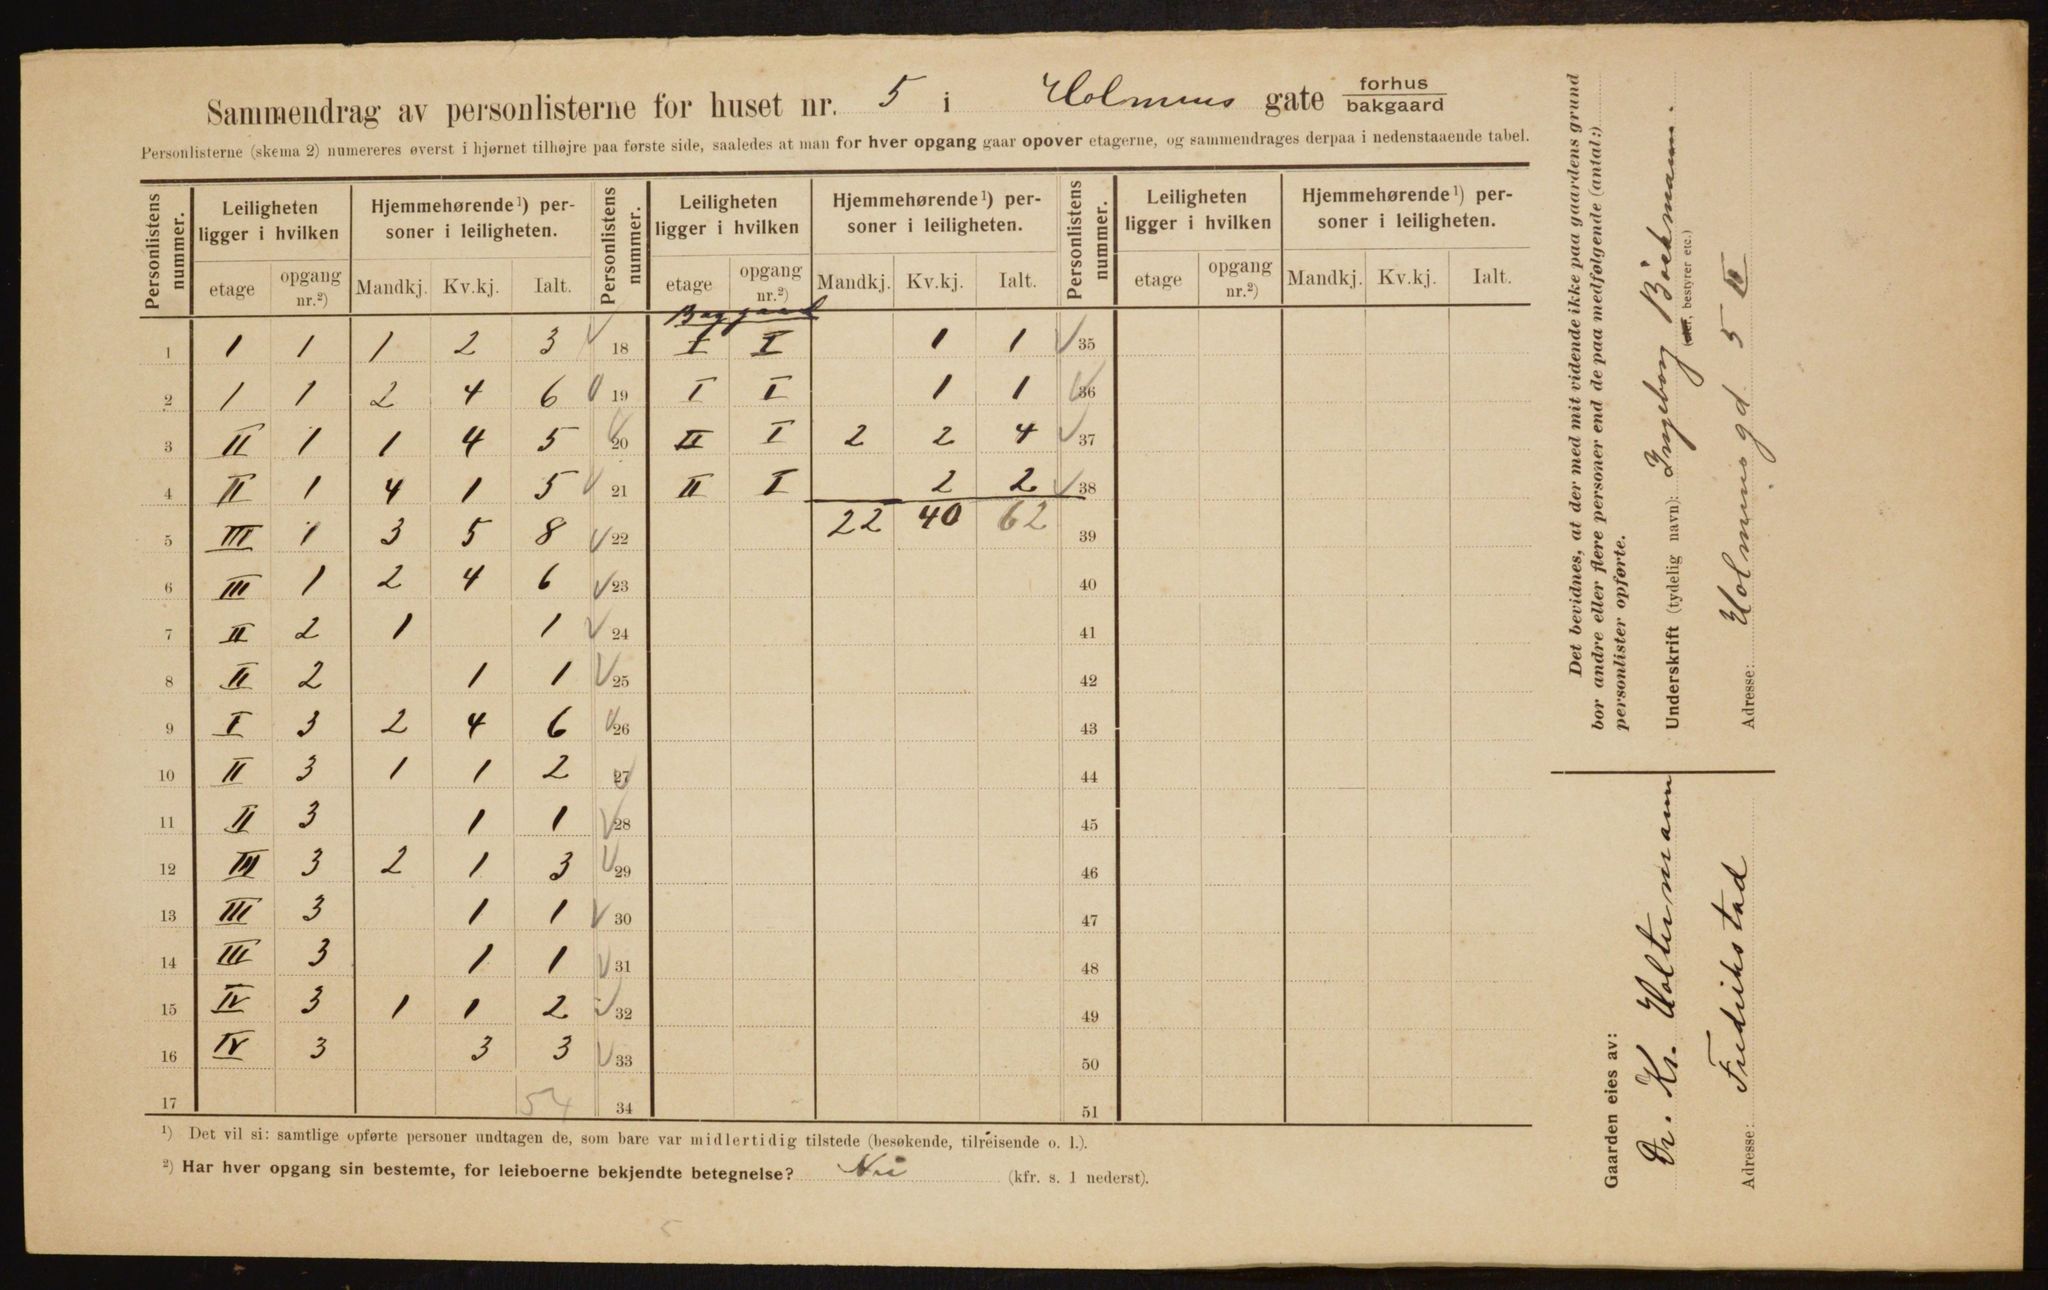 Sammendrag av personlisterne for huset nr. 5 i Holmens gate forhus bakgaard
Personlisterne (skema 2) numereres øverst i hjørnet tilhøjre paa første side, saaledes at man for hver opgang gaar opover etagerne, og sammendrages derpaa i nedenstaaende tabel.
Personlistens nummer. Leiligheten ligger i hvilken Hjemmehørende¹) personer i leiligheten. Personlistens nummer. Leiligheten ligger i hvilken Hjemmehørende¹) personer i leiligheten. Personlistens nummer. Leiligheten ligger i hvilken Hjemmehørende¹) personer i leiligheten.
etage opgang nr.²) Mandkj. Kv.kj. Ialt. etage opgang nr.²) Mandkj. Kv.kj. Ialt. etage opgang nr.²) Mandkj. Kv.kj. Ialt.
Baggaard
1 1 1 1 2 3 18 I I 1 1 35
2 1 1 2 4 6 19 I I 1 1 36
3 II 1 1 4 5 20 II I 2 2 4 37
4 II 1 4 1 5 21 II I 2 2 38
5 III 1 3 5 8 22 22 40 62 39
6 III 1 2 4 6 23 40
7 II 2 1 1 24 41
8 II 2 1 1 25 42
9 I 3 2 4 6 26 43
10 II 3 1 1 2 27 44
11 II 3 1 1 28 45
12 III 3 2 1 3 29 46
13 III 3 1 1 30 47
14 III 3 1 1 31 48
15 IV 3 1 1 2 32 49
16 IV 3 3 3 33 50
17 54 34 51
¹) Det vil si: samtlige opførte personer undtagen de, som bare var midlertidig tilstede (besøkende, tilreisende o. l.).
²) Har hver opgang sin bestemte, for leieboerne bekjendte betegnelse? Nei (kfr. s. 1 nederst).
5
Det bevidnes, at der med mit vidende ikke paa gaardens grund
bor andre eller flere personer end de paa medfølgende (antal:)
personlister opførte.
Underskrift (tydelig navn): Ingeborg Böckmann.
(eier, bestyrer etc.)
Adresse: Holmensgd. 5 II
Gaarden eies av:
Dr. Kr. Holtermann
Adresse: Fredrikstad